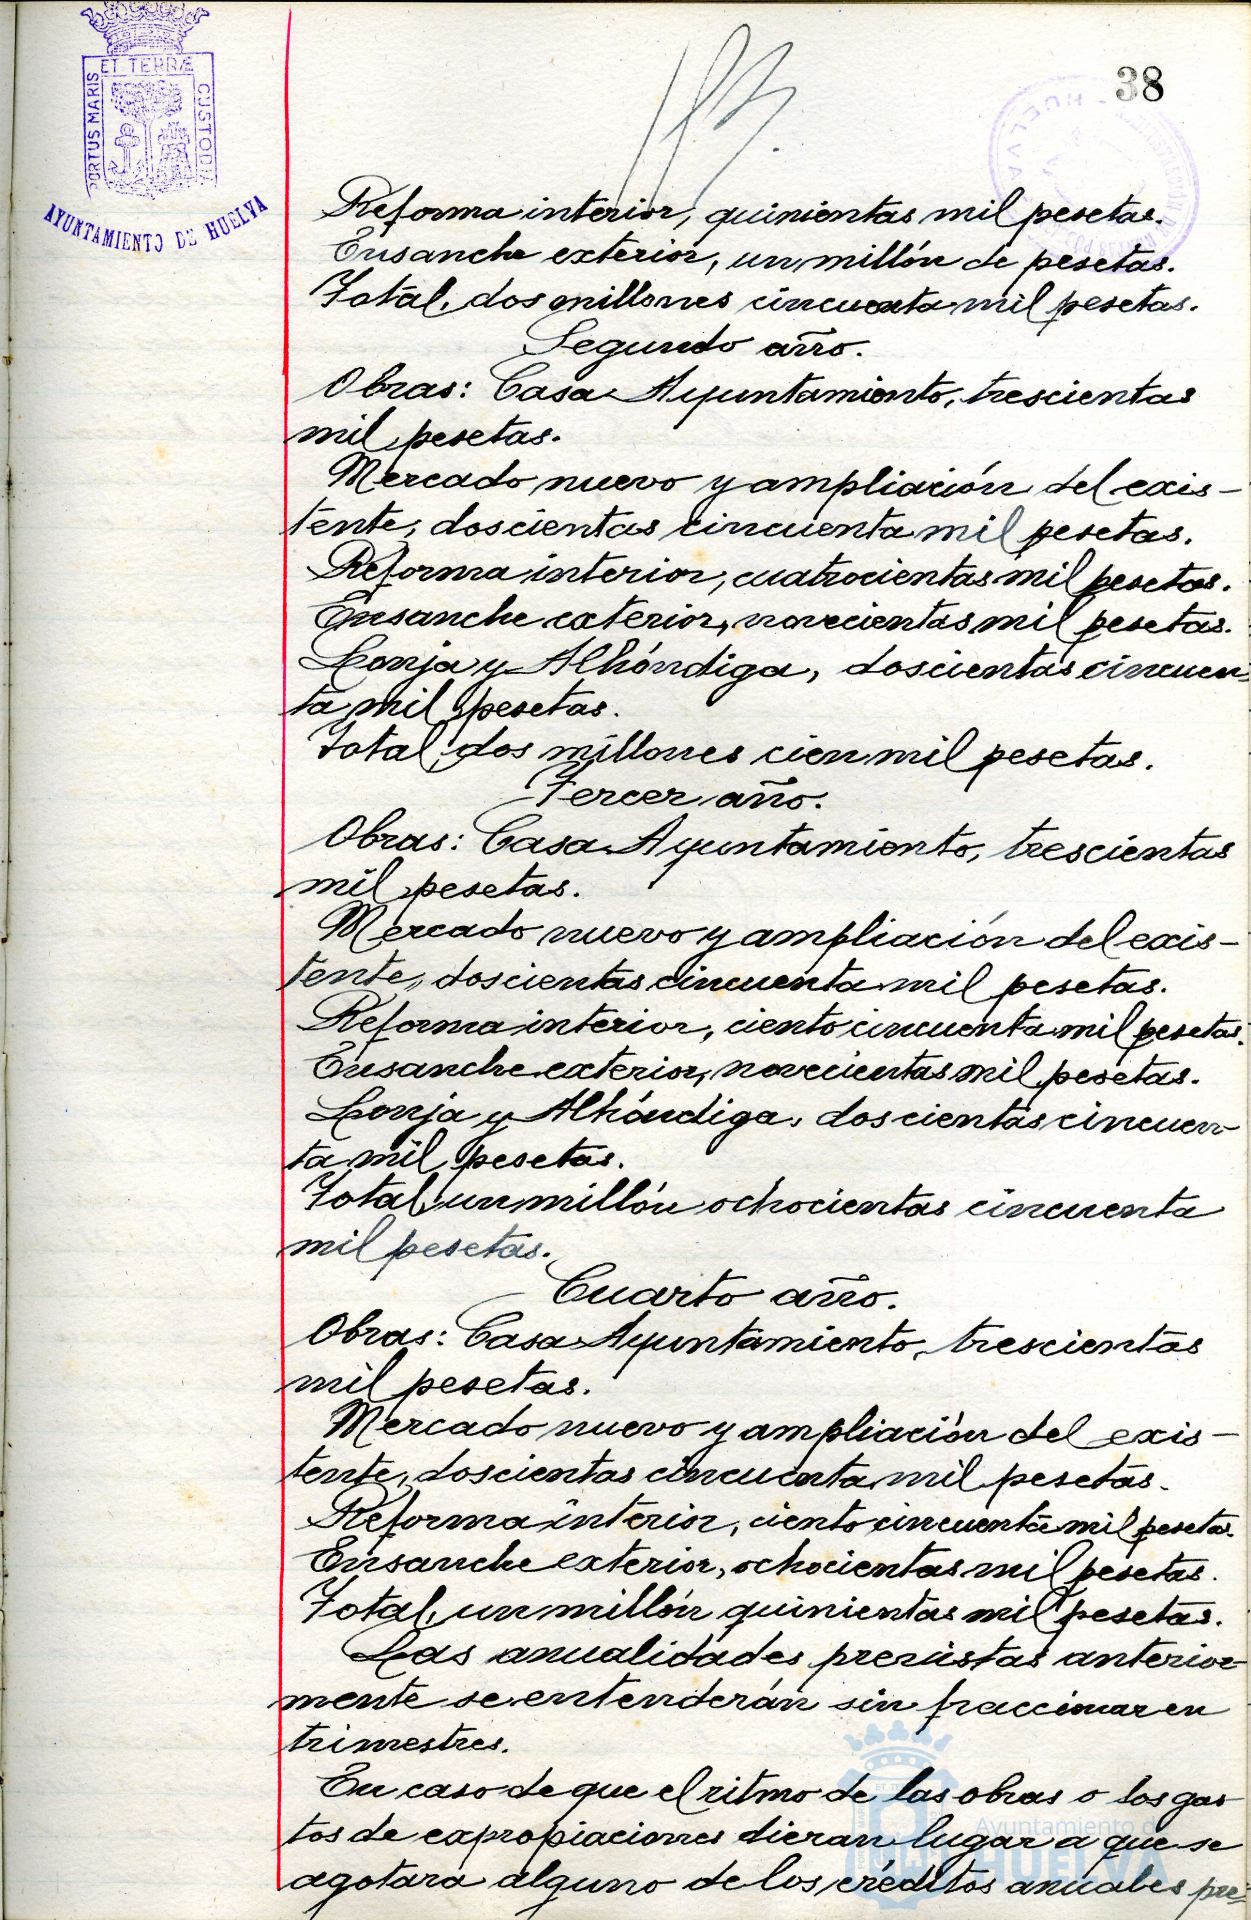 38
ET TERRÆ
PORTUS MARIS
CUSTODIA
AYUNTAMIENTO DE HUELVA
HUELVA
Reforma interior, quinientas mil pesetas.
Ensanche exterior, un millón de pesetas.
Total, dos millones cincuenta mil pesetas.
Segundo año.
Obras: Casa Ayuntamiento, trescientas
mil pesetas.
Mercado nuevo y ampliación del exis-
tente, doscientas cincuenta mil pesetas.
Reforma interior, cuatrocientas mil pesetas.
Ensanche exterior, novecientas mil pesetas.
Lonja y Alhóndiga, doscientas cincuen-
ta mil pesetas.
Total, dos millones cien mil pesetas.
Tercer año.
Obras: Casa Ayuntamiento, trescientas
mil pesetas.
Mercado nuevo y ampliación del exis-
tente, doscientas cincuenta mil pesetas.
Reforma interior, ciento cincuenta mil pesetas.
Ensanche exterior, novecientas mil pesetas.
Lonja y Alhóndiga, doscientas cincuen-
ta mil pesetas.
Total, un millón ochocientas cincuenta
mil pesetas.
Cuarto año.
Obras: Casa Ayuntamiento, trescientas
mil pesetas.
Mercado nuevo y ampliación del exis-
tente, doscientas cincuenta mil pesetas.
Reforma interior, ciento cincuenta mil pesetas.
Ensanche exterior, ochocientas mil pesetas.
Total, un millón quinientas mil pesetas.
Las anualidades previstas anterior-
mente se entenderán sin fraccionar en
trimestres.
En caso de que el ritmo de las obras o los gas-
tos de expropiaciones dieran lugar a que se
agotara alguno de los créditos anuales pre-
Ayuntamiento de
HUELVA